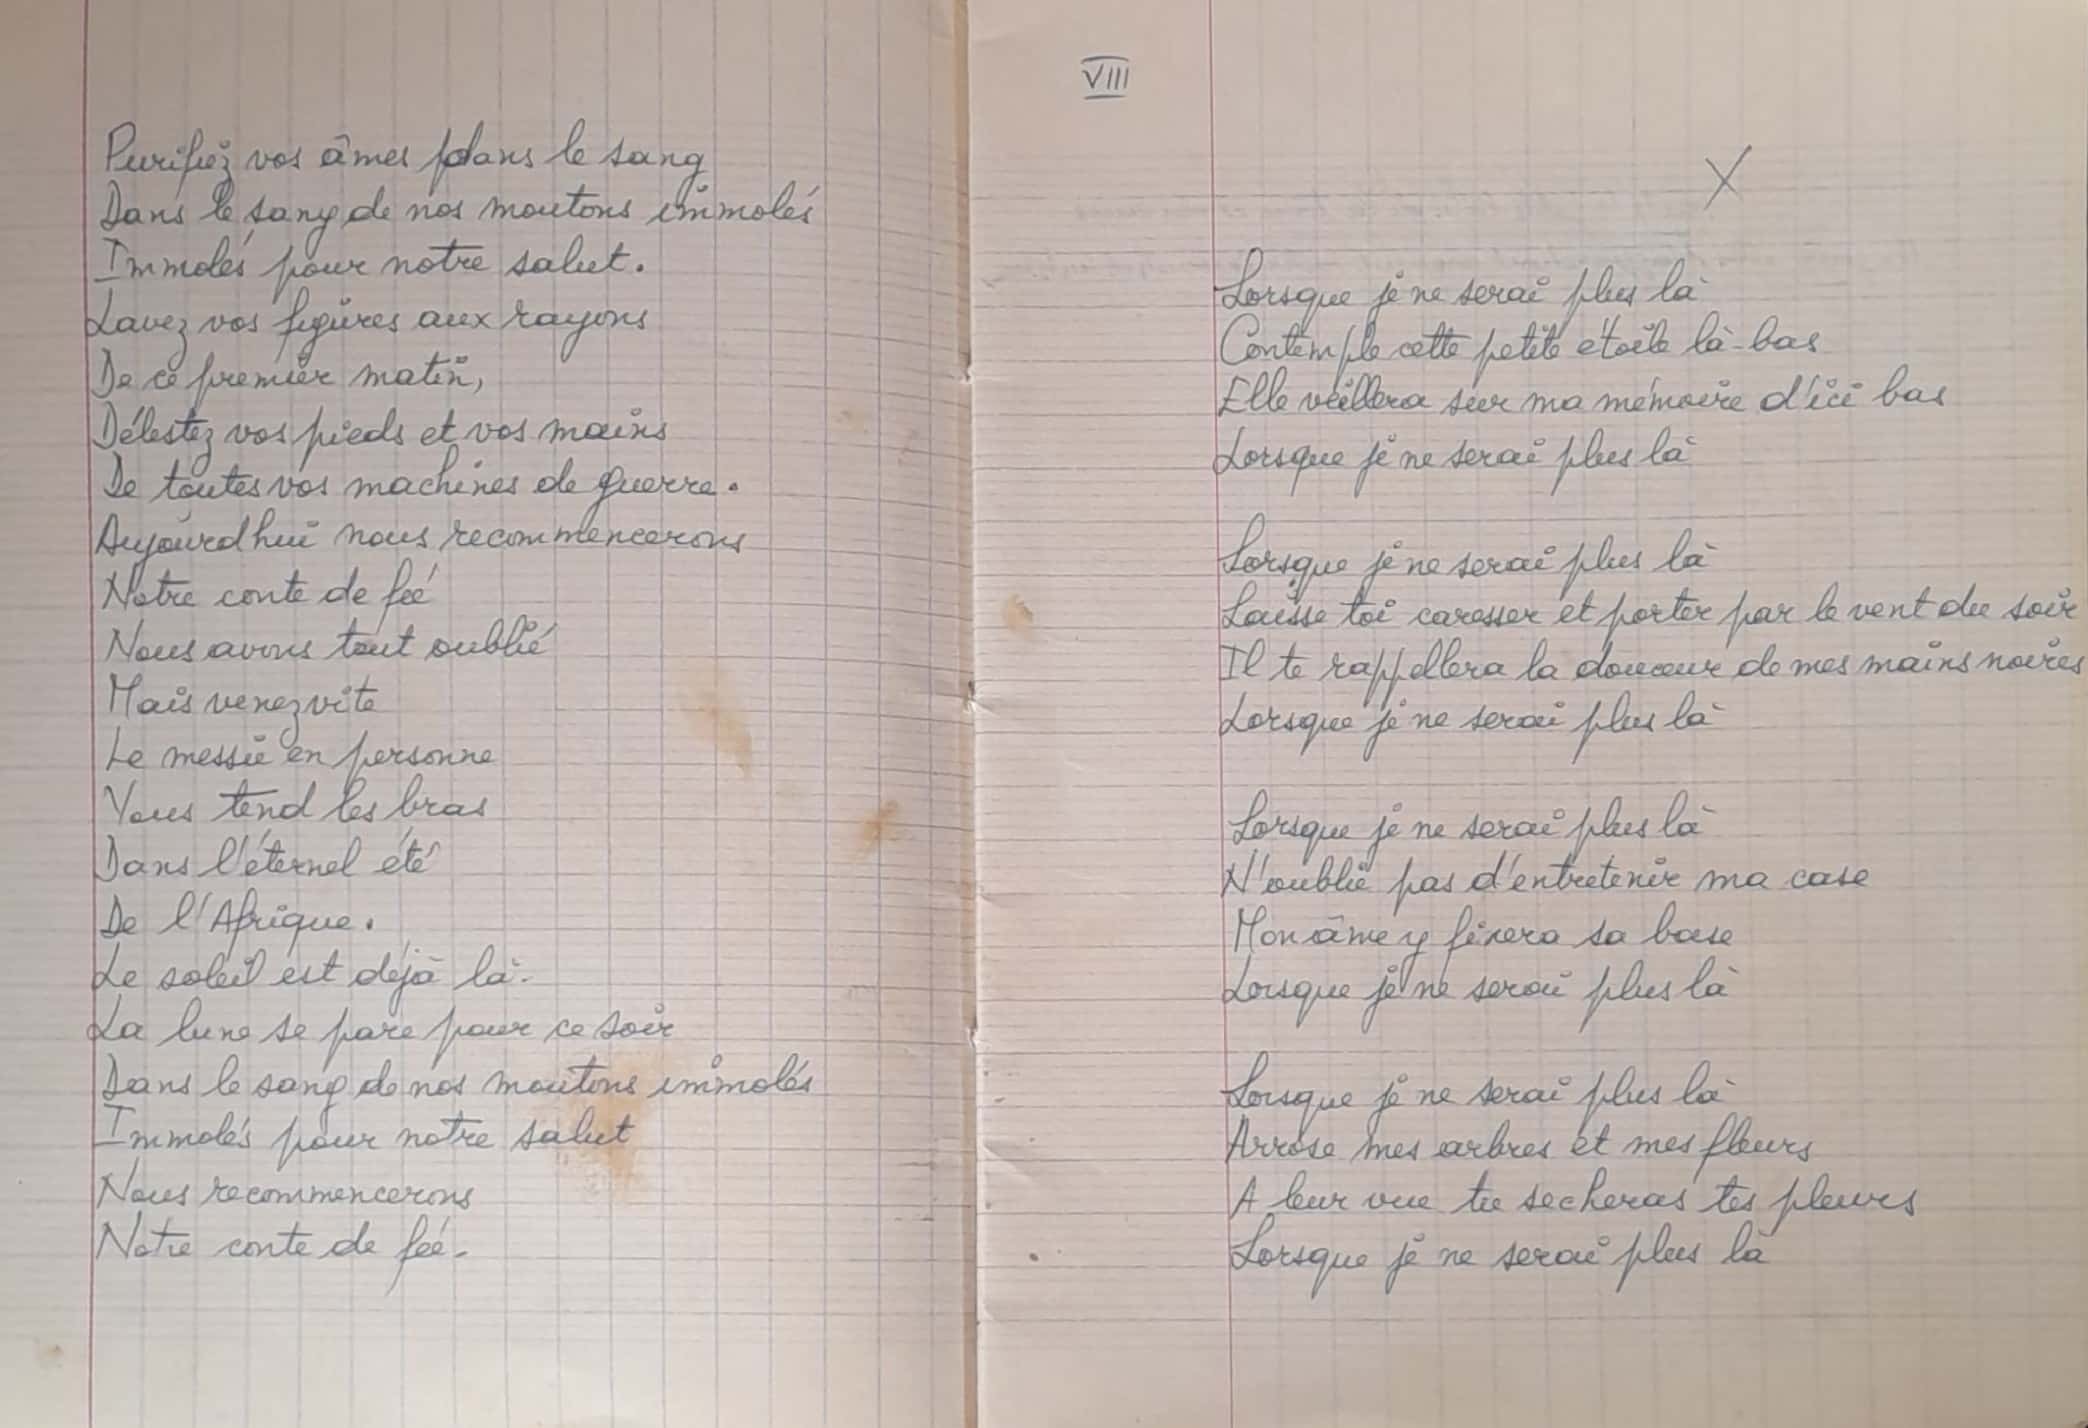 Purifiez vos âmes dans le sang
Dans le sang de nos moutons immolés
Immolés pour notre salut.
Lavez vos figures aux rayons
De ce premier matin,
Délestez vos pieds et vos mains
De toutes vos machines de guerre.
Aujourd'hui nous recommencerons
Notre conte de fée
Nous avons tout oublié
Mais venez vite
Le messie en personne
Vous tend les bras
Dans l'éternel été
De l'Afrique.
Le soleil est déjà là.
La lune se pare pour ce soir
Dans le sang de nos moutons immolés
Immolés pour notre salut
Nous recommencerons
Notre conte de fée.
VIII
X
Lorsque je ne serai plus là
Contemple cette petite étoile là-bas
Elle veillera sur ma mémoire d'ici bas
Lorsque je ne serai plus là
Lorsque je ne serai plus là
Laisse toi caresser et porter par le vent du soir
Il te rappellera la douceur de mes mains noires
Lorsque je ne serai plus là
Lorsque je ne serai plus là
N'oublie pas d'entretenir ma case
Mon âme y fixera sa base
Lorsque je ne serai plus là
Lorsque je ne serai plus là
Arrose mes arbres et mes fleurs
A leur vue tu secheras tes pleurs
Lorsque je ne serai plus là